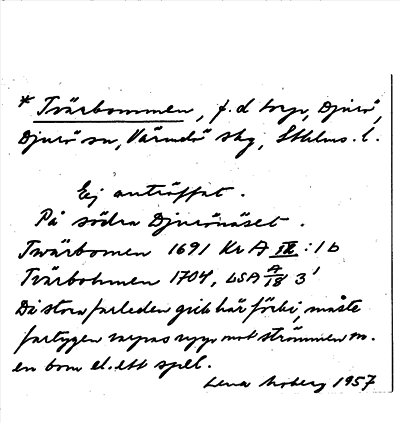 * Tvärbommen, f.d torp, Djurö,
Djurö sn, Värmdö skg, Sthlms. l.
Ej anträffat.
På södra Djurönäset.
Twärbomen 1691 Kr A IX :1 b
Tvärbohmen 1704, LSA A/18 3¹
Då stora farleden gick här förbi, måste
fartygen varpas upp mot strömmen m.
en bom el. ett spel.
Lena Moberg 1957